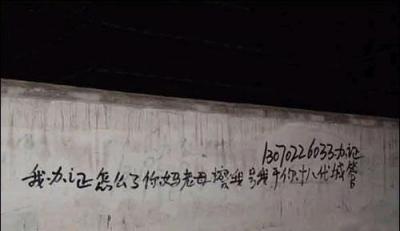 13070226033办证
我办证怎么了你妈老母 我号我干你十八代城管